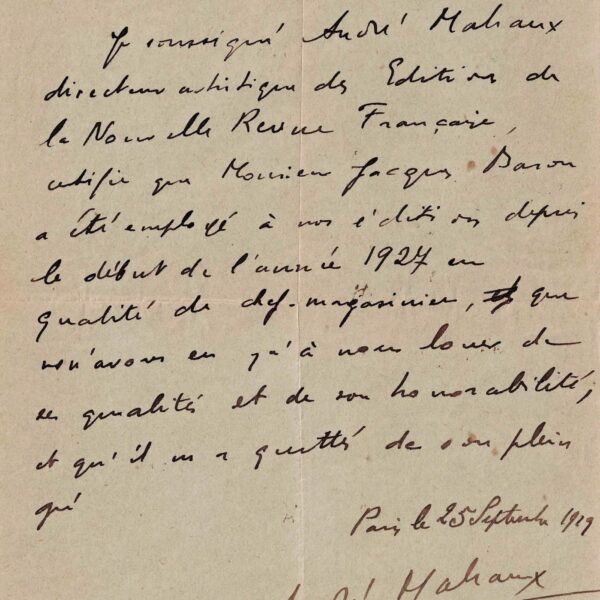 Je soussigné André Malraux
directeur artistique des Editions de
la Nouvelle Revue Française,
certifie que Monsieur Jacques Baron
a été employé à nos éditions depuis
le début de l'année 1927 en
qualité de chef-magasinier, que
nous n'avons eu qu'à nous louer de
ses qualités et de son honorabilité,
et qu'il nous a quittés de son plein
gré
Paris le 25 Septembre 1929
André Malraux